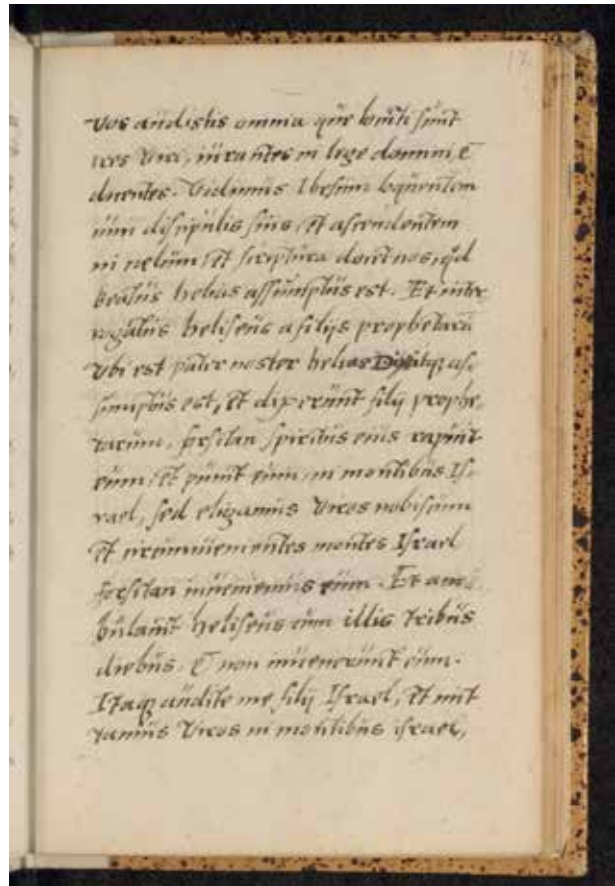 17
vos audistis omnia que locuti sunt
tres viri, iurantes in lege domini, et
dicentes. Vidimus Ihesum loquentem
cum discipulis suis, et ascendentem
in celum, et scriptura docet nos, qd
beatus helias assumptus est. Et inter
rogatus heliseus a filijs prophetarũ
vbi est pater noster helias Dixitq as,
sumptus est, et dixerunt filij prophe,
tarum, forsitan spiritus eius rapuit
eum, et punit eum, in montibus Is,
rael, sed eligamus viros nobiscum
et circumuenientes montes Israel
forsitan inueniemus eum. Et am
bulauit heliseus cum illis tribus
diebus. et non inuenerunt eum.
Itaq audite me filij Israel, et mit
tamus viros in montibus israel,